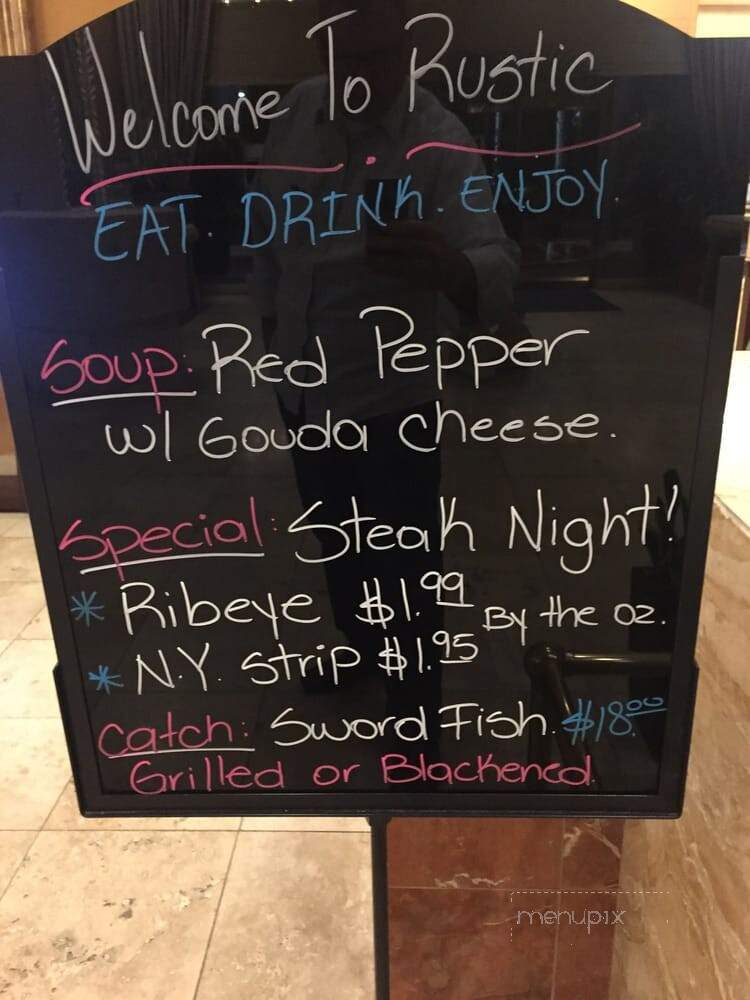 Welcome To Rustic
EAT. DRINK. ENJOY.
Soup: Red Pepper
w/ Gouda cheese.
Special: Steak Night!
* Ribeye $1.99 By the oz.
* N.Y. strip $1.95
Catch: Sword Fish. $18.00
Grilled or Blackened.
menupix